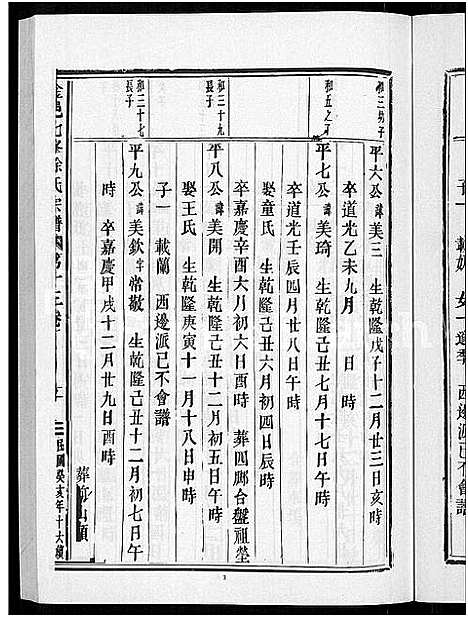 子一 載
女一適季
西邊派已不會譜
和三幼子
平六公諱美三 生乾隆戊子十二月廿三日亥時
卒道光乙未九月 日 時
和五之子
平七公諱美琦 生乾隆己丑七月十七日亥時
卒道光壬辰四月廿八日午時
娶童氏 生乾隆己丑六月初四日辰時
卒嘉慶辛酉六月初六日酉時 葬四鄉合盤祖塋
和三十九長子
平八公諱美開 生乾隆己丑十二月初五日午時
娶王氏 生乾隆庚寅十一月十八日申時
子一 載蘭 西邊派已不會譜
和三十七長子
平九公諱美欽字常敬 生乾隆己丑十二月初七日午
時 卒嘉慶甲戌十二月廿九日酉時
葬 山頭
徐氏宗譜 第十三卷
民國癸亥年十六續